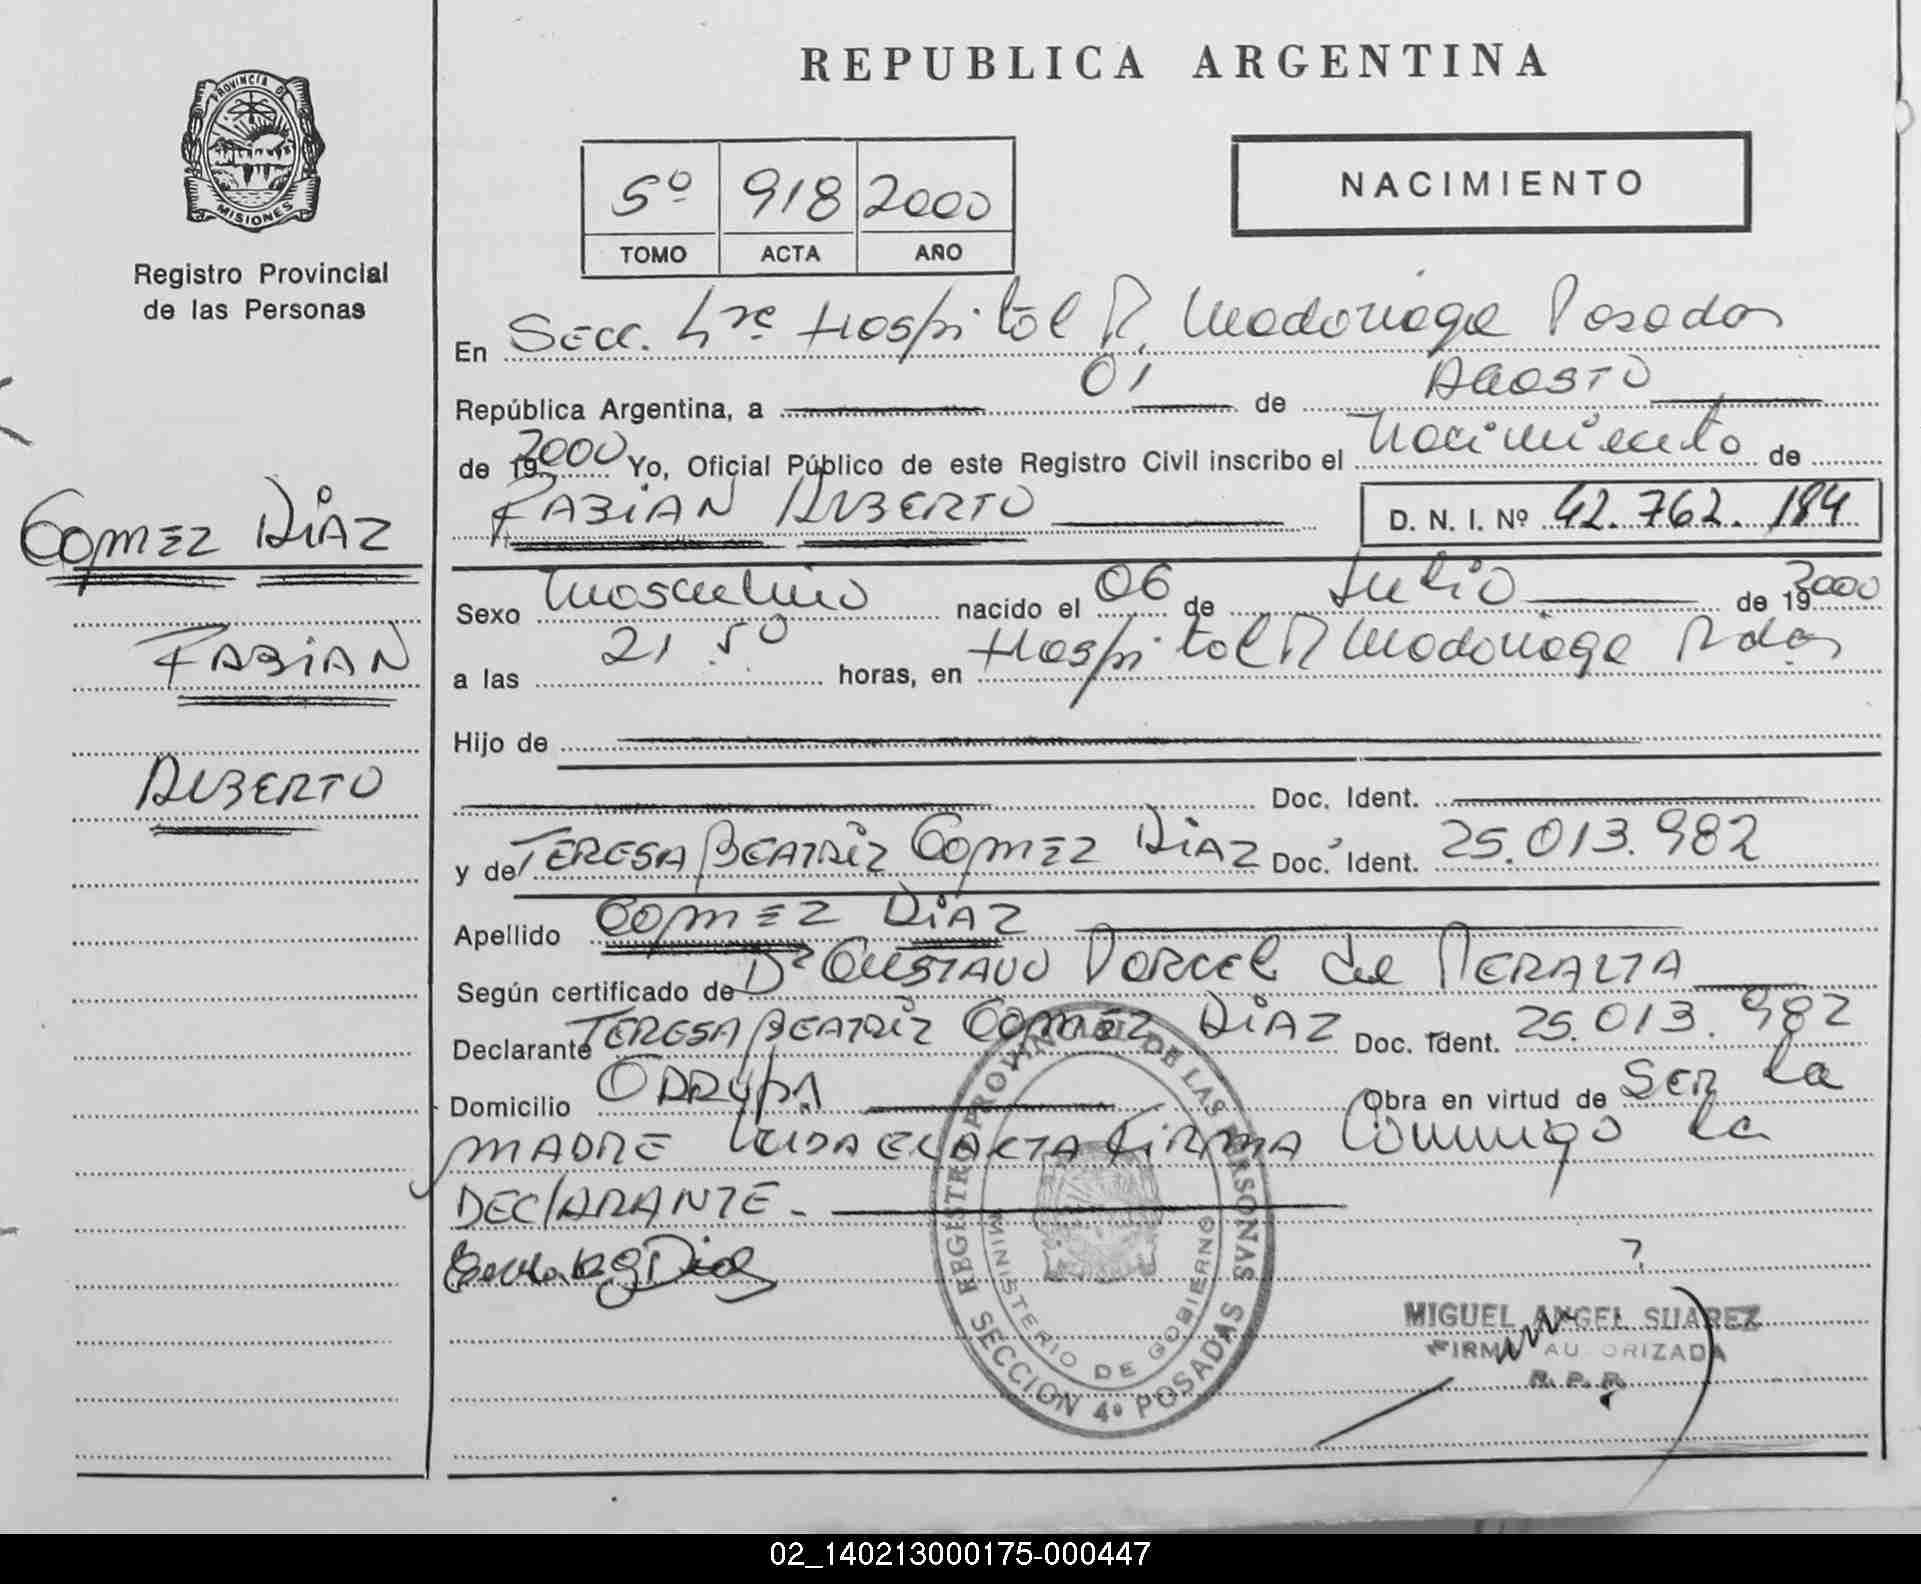 PROVINCIA DE
MISIONES
Registro Provincial
de las Personas
GOMEZ DIAZ
FABIAN
ALBERTO
REPUBLICA ARGENTINA
5º 918 2000
TOMO ACTA AÑO
NACIMIENTO
En Secc. 4ta Hospital R. Madariaga Posadas
República Argentina, a 01 de AGOSTO
de 19 2000 Yo, Oficial Público de este Registro Civil inscribo el Nacimiento de
FABIAN ALBERTO D. N. I. Nº 42.762.184
Sexo Masculino nacido el 06 de Julio de 19 2000
a las 21.50 horas, en Hospital R Madariaga Pdas
Hijo de
Doc. Ident.
y de TERESA BEATRIZ GOMEZ DIAZ Doc. Ident. 25.013.982
Apellido GOMEZ DIAZ
Según certificado de Dr GUSTAVO PORCEL de PERALTA
Declarante TERESA BEATRIZ GOMEZ DIAZ Doc. Ident. 25.013.982
Domicilio Obra en virtud de SER la
MADRE LEIDA EL ACTA FIRMA Conmigo la
DECLARANTE -
REGISTRO PROVINCIAL DE LAS PERSONAS
MINISTERIO DE GOBIERNO
SECCION 4º POSADAS
MIGUEL ANGEL SUAREZ
FIRMA AUTORIZADA
R. P. P.
02_140213000175-000447